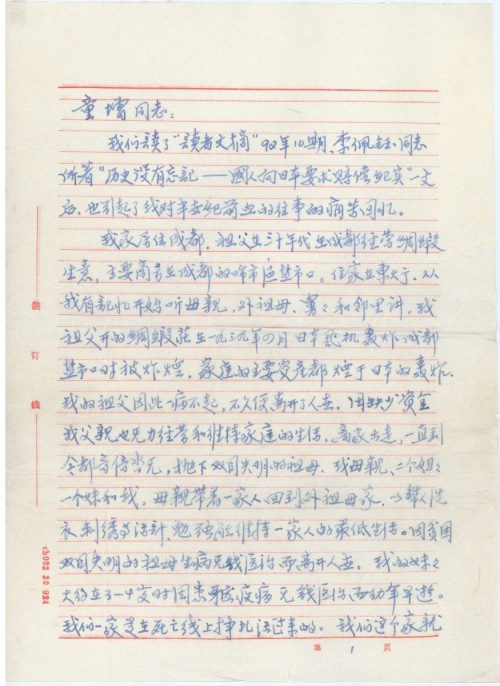 童增同志：
我们读了"读者文摘"92年10期，李佩钰同志
所著"历史没有忘記——國人向日本要求赔偿纪实"一文
后，也引起了我对半世纪前血的往事的痛苦回忆。
我家居住成都，祖父在三十年代在成都经营綢缎
生意，主要商号在成都的市區盐市口。住家在東大, 从
我有記忆开始听母親，外祖母，舅々和邻里讲，我
祖父开的綢缎莊在一九三九年 月日本飞机轰炸成都
盐市口时被炸燬，家庭的主要资產都燬于日本的轰炸。
我的祖父因此一病不起，不久便离开了人世。因缺少资金
我父親也无力经营和维持家庭的生活，离家出走，一直到
今都音信杳无，抛下双目失明的祖母，我母親，二个姐々
一个妹和我，母親带着一家人回到外祖母家，以帮人洗
衣刺绣为活计，勉强能维持一家人的最低生活。因贫困
双目失明的祖母生病无钱医治而离开人世，我的妹々
大约在3—4岁时因患 疫病无钱医治而幼年早逝。
我们一家是在死亡线上挣扎活过来的。我们这个家就
装
订
线
ch082 20 924
第 1 页